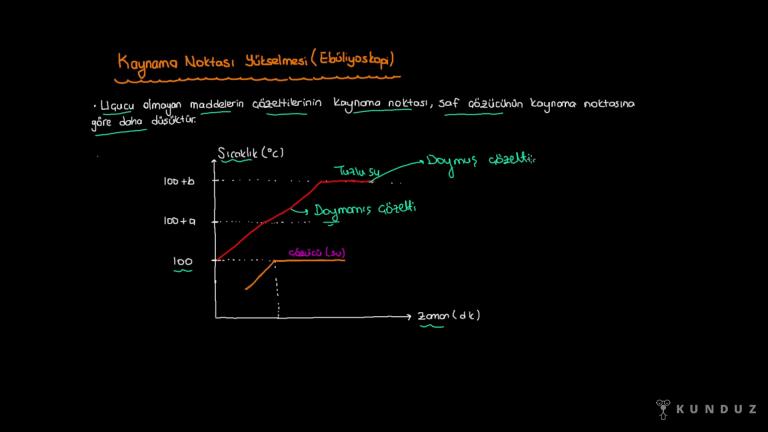 Kaynama Noktası Yükselmesi (Ebüliyoskopi)
• Uçucu olmayan maddelerin çözeltilerinin kaynama noktası, saf çözücünün kaynama noktasına
göre daha düşüktür.
Sıcaklık (°C)
Tuzlu su
Doymuş çözelti
100+b
Doymamış çözelti
100+a
çözücü (su)
100
Zaman (dk)
KUNDUZ